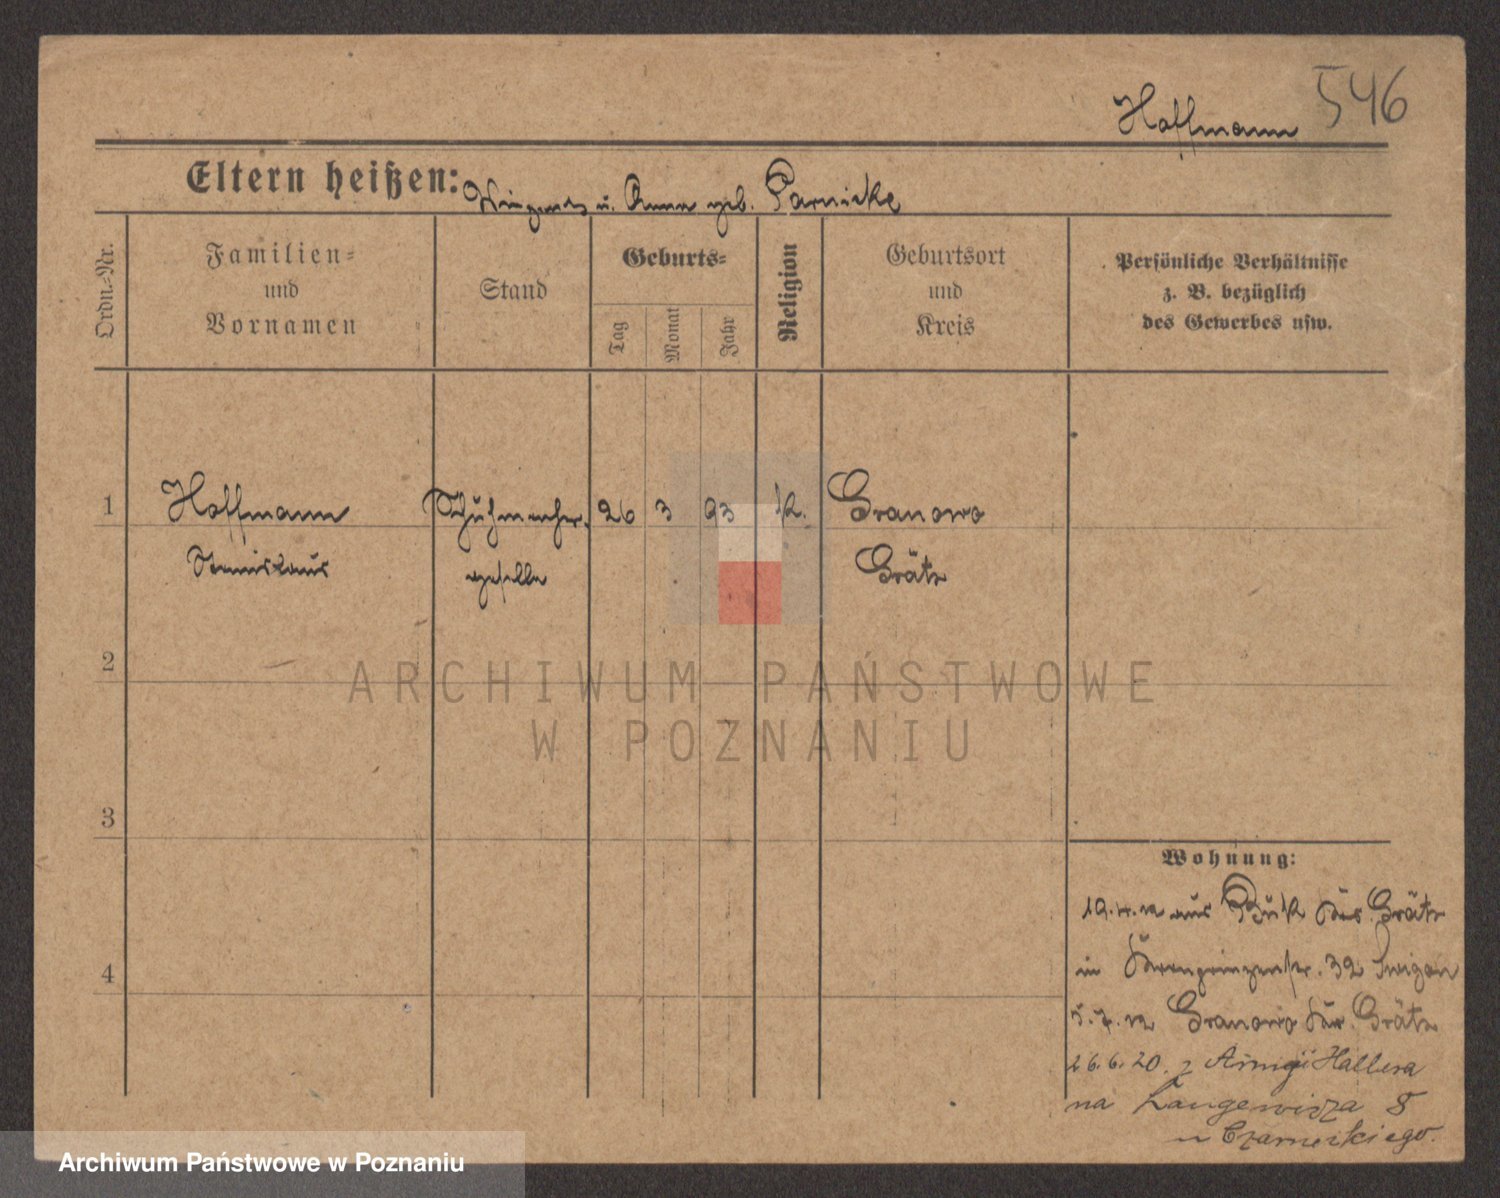 Hoffmann 546
Eltern heißen: Vinzentz u. Anna geb. Parnicke
Ordn.-Nr.
Familien-
und
Vornamen
Stand
Geburts-
Tag
Monat
Jahr
Religion
Geburtsort
und
Kreis
Persönliche Verhältnisse
z. B. bezüglich
des Gewerbes usw.
1 Hoffmann Schuhmacher 26 3 93 k. Granowo
Stanislaus geselle Grätz
2
3
4
Wohnung:
19.4.12 aus Buk Grätz
in Kronprinzenstr. 32
5.7.12 Granowo Kr. Grätz
26.6.20. z Armji Hallera
na Langewicza 8
u Czarneckiego.
ARCHIWUM PAŃSTWOWE
W POZNANIU
Archiwum Państwowe w Poznaniu